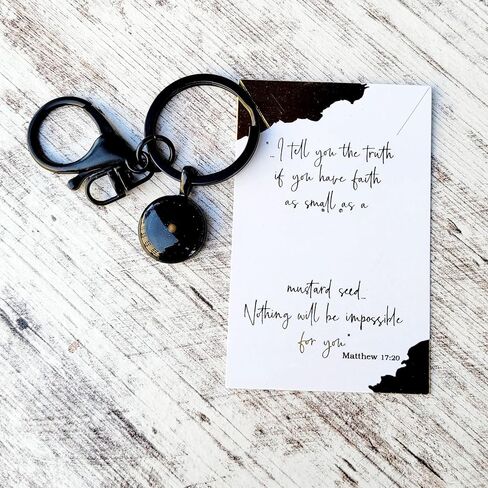 _I tell you the truth
if you have faith
as small as a
mustard seed_
Nothing will be impossible
for you"
Matthew 17:20